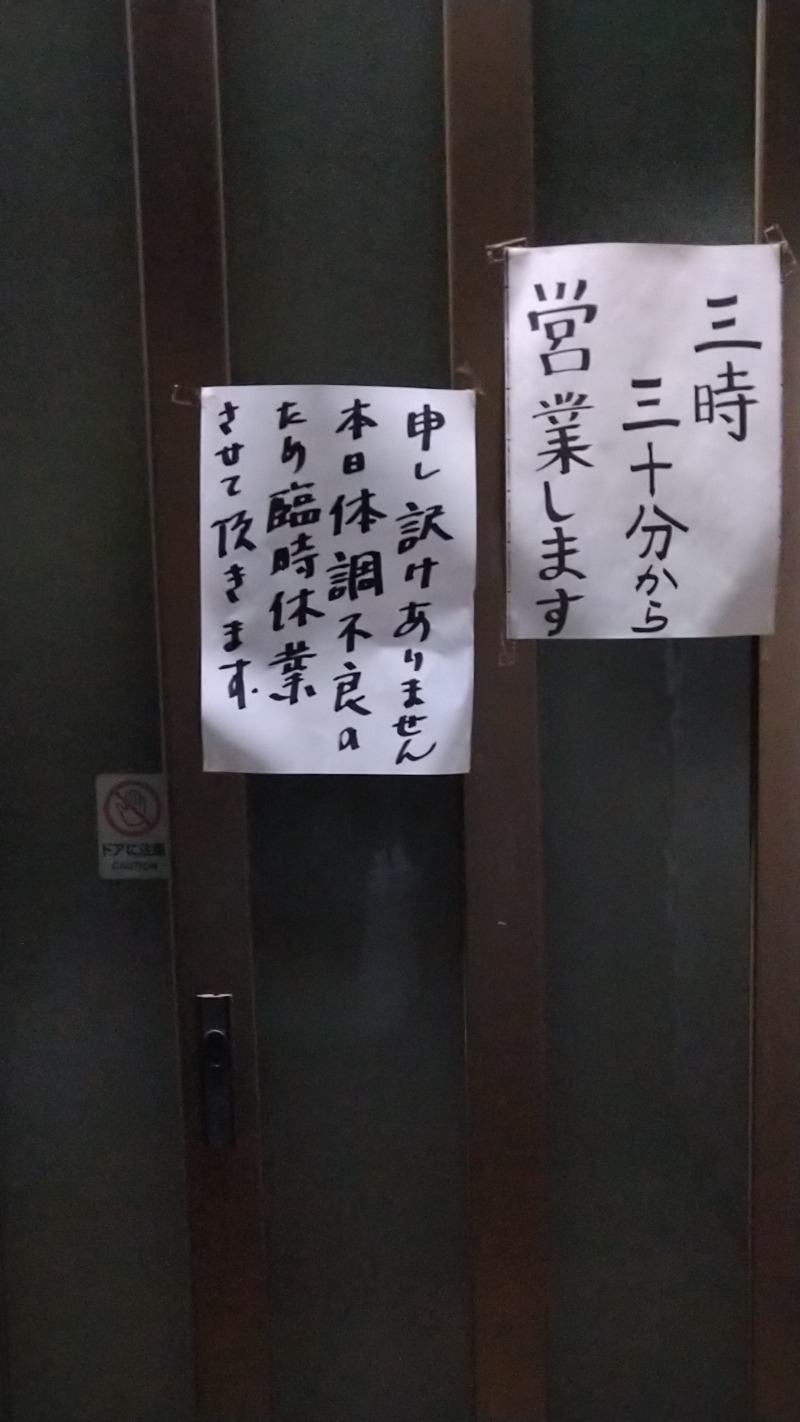 三時
三十分から
営業します
申し訳けありません
本日体調不良の
ため臨時休業
させて頂きます.
ドアに注意
CAUTION